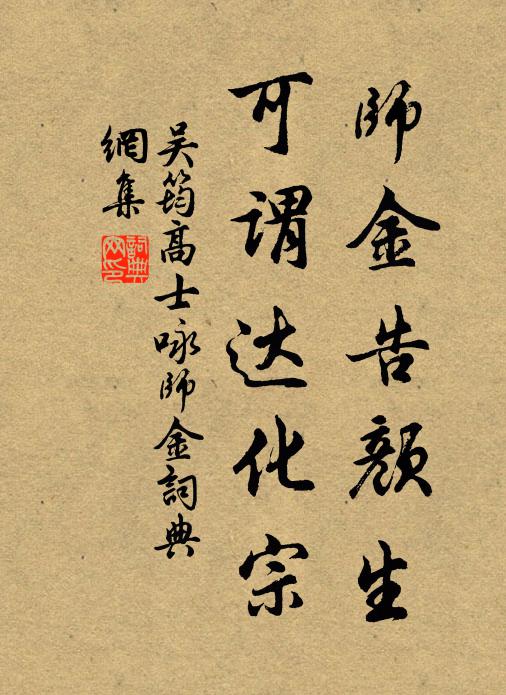 師金告顏生
可謂达化宗
吴筠高士咏師金詞典
網集
詞典
网印